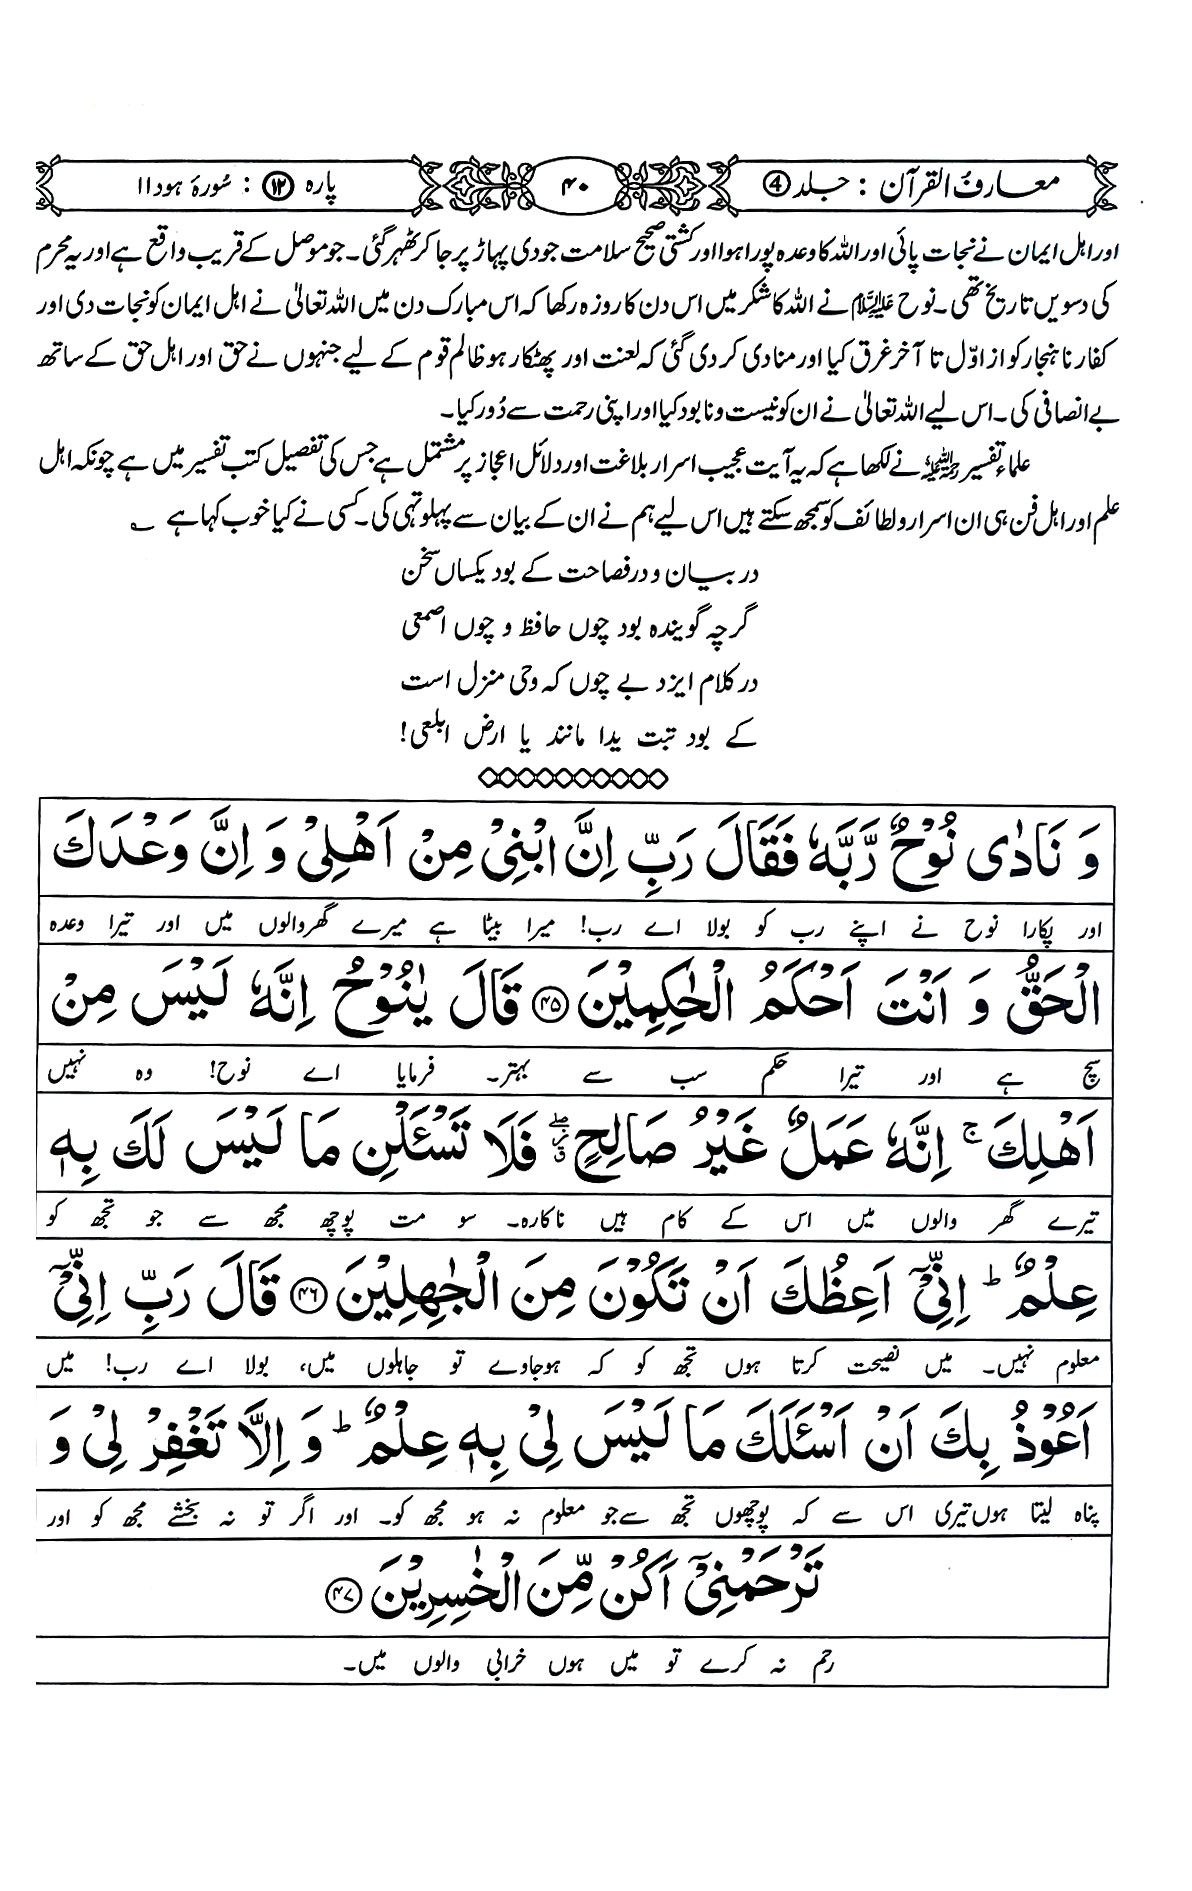 معارف القرآن : جلد ④ ۴۰ پارہ ⑫ : سُورۂ ہود ۱۱
اور اہل ایمان نے نجات پائی اور اللہ کا وعدہ پورا ہوا اور کشتی صحیح سلامت جودی پہاڑ پر جا کر ٹھہر گئی۔ جو موصل کے قریب واقع ہے اور یہ محرم
کی دسویں تاریخ تھی۔ نوح علیہ السلام نے اللہ کا شکر میں اس دن کا روزہ رکھا کہ اس مبارک دن میں اللہ تعالیٰ نے اہل ایمان کو نجات دی اور
کفار ناہنجار کو از اوّل تا آخر غرق کیا اور منادی کر دی گئی کہ لعنت اور پھٹکار ہو ظالم قوم کے لیے جنہوں نے حق اور اہل حق کے ساتھ
بے انصافی کی۔ اس لیے اللہ تعالیٰ نے ان کو نیست و نابود کیا اور اپنی رحمت سے دُور کیا۔
علماء تفسیر رحمہم اللہ نے لکھا ہے کہ یہ آیت عجیب اسرار بلاغت اور دلائل اعجاز پر مشتمل ہے جس کی تفصیل کتب تفسیر میں ہے چونکہ اہل
علم اور اہل فن ہی ان اسرار و لطائف کو سمجھ سکتے ہیں اس لیے ہم نے ان کے بیان سے پہلو تہی کی۔ کسی نے کیا خوب کہا ہے ؎
در بیان و در فصاحت کے بود یکساں سخن
گرچہ گویندہ بود چوں حافظ و چوں اصمعی
در کلام ایزد بے چوں کہ وحی منزل است
کے بود تبت یدا مانند یا ارض ابلعی!
وَ نَادٰی نُوْحٌ رَّبَّهٗ فَقَالَ رَبِّ اِنَّ ابْنِیْ مِنْ اَهْلِیْ وَ اِنَّ وَعْدَكَ
اور پکارا نوح نے اپنے رب کو بولا اے رب! میرا بیٹا ہے میرے گھر والوں میں اور تیرا وعدہ
الْحَقُّ وَ اَنْتَ اَحْكَمُ الْحٰكِمِیْنَ ۴۵ قَالَ یٰنُوْحُ اِنَّهٗ لَیْسَ مِنْ
سچ ہے اور تیرا حکم سب سے بہتر۔ فرمایا اے نوح! وہ نہیں
اَهْلِكَ ۚ اِنَّهٗ عَمَلٌ غَیْرُ صَالِحٍ فَلَا تَسْـَٔلْنِ مَا لَیْسَ لَكَ بِهٖ
تیرے گھر والوں میں اس کے کام ہیں ناکارہ۔ سو مت پوچھ مجھ سے جو تجھ کو
عِلْمٌ ؕ اِنِّیْۤ اَعِظُكَ اَنْ تَكُوْنَ مِنَ الْجٰهِلِیْنَ ۴۶ قَالَ رَبِّ اِنِّیْۤ
معلوم نہیں۔ میں نصیحت کرتا ہوں تجھ کو کہ ہو جاوے تو جاہلوں میں، بولا اے رب! میں
اَعُوْذُ بِكَ اَنْ اَسْـَٔلَكَ مَا لَیْسَ لِیْ بِهٖ عِلْمٌ ؕ وَ اِلَّا تَغْفِرْ لِیْ وَ
پناہ لیتا ہوں تیری اس سے کہ پوچھوں تجھ سے جو معلوم نہ ہو مجھ کو۔ اور اگر تو نہ بخشے مجھ کو اور
تَرْحَمْنِیْۤ اَكُنْ مِّنَ الْخٰسِرِیْنَ ۴۷
رحم نہ کرے تو میں ہوں خرابی والوں میں۔